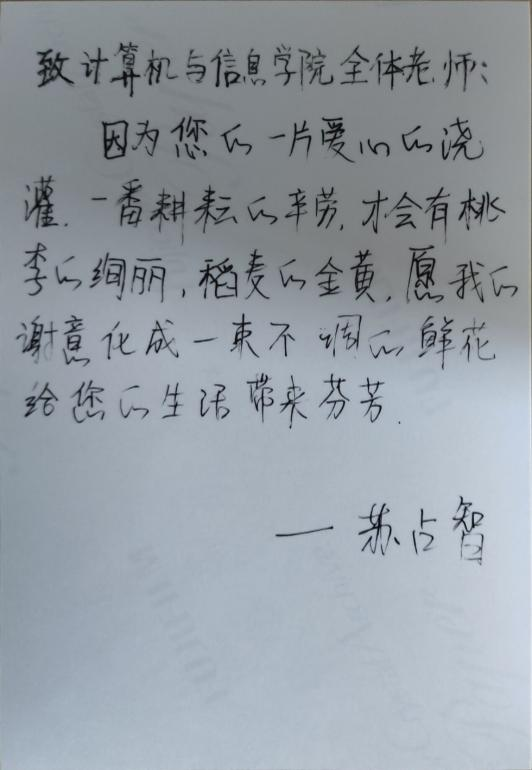 致计算机与信息学院全体老师:
因为您的一片爱心的浇
灌.一番耕耘的辛劳,才会有桃
李的绚丽,稻麦的金黄,愿我的
谢意化成一束不凋的鲜花
给您的生活带来芬芳.
— 苏占智